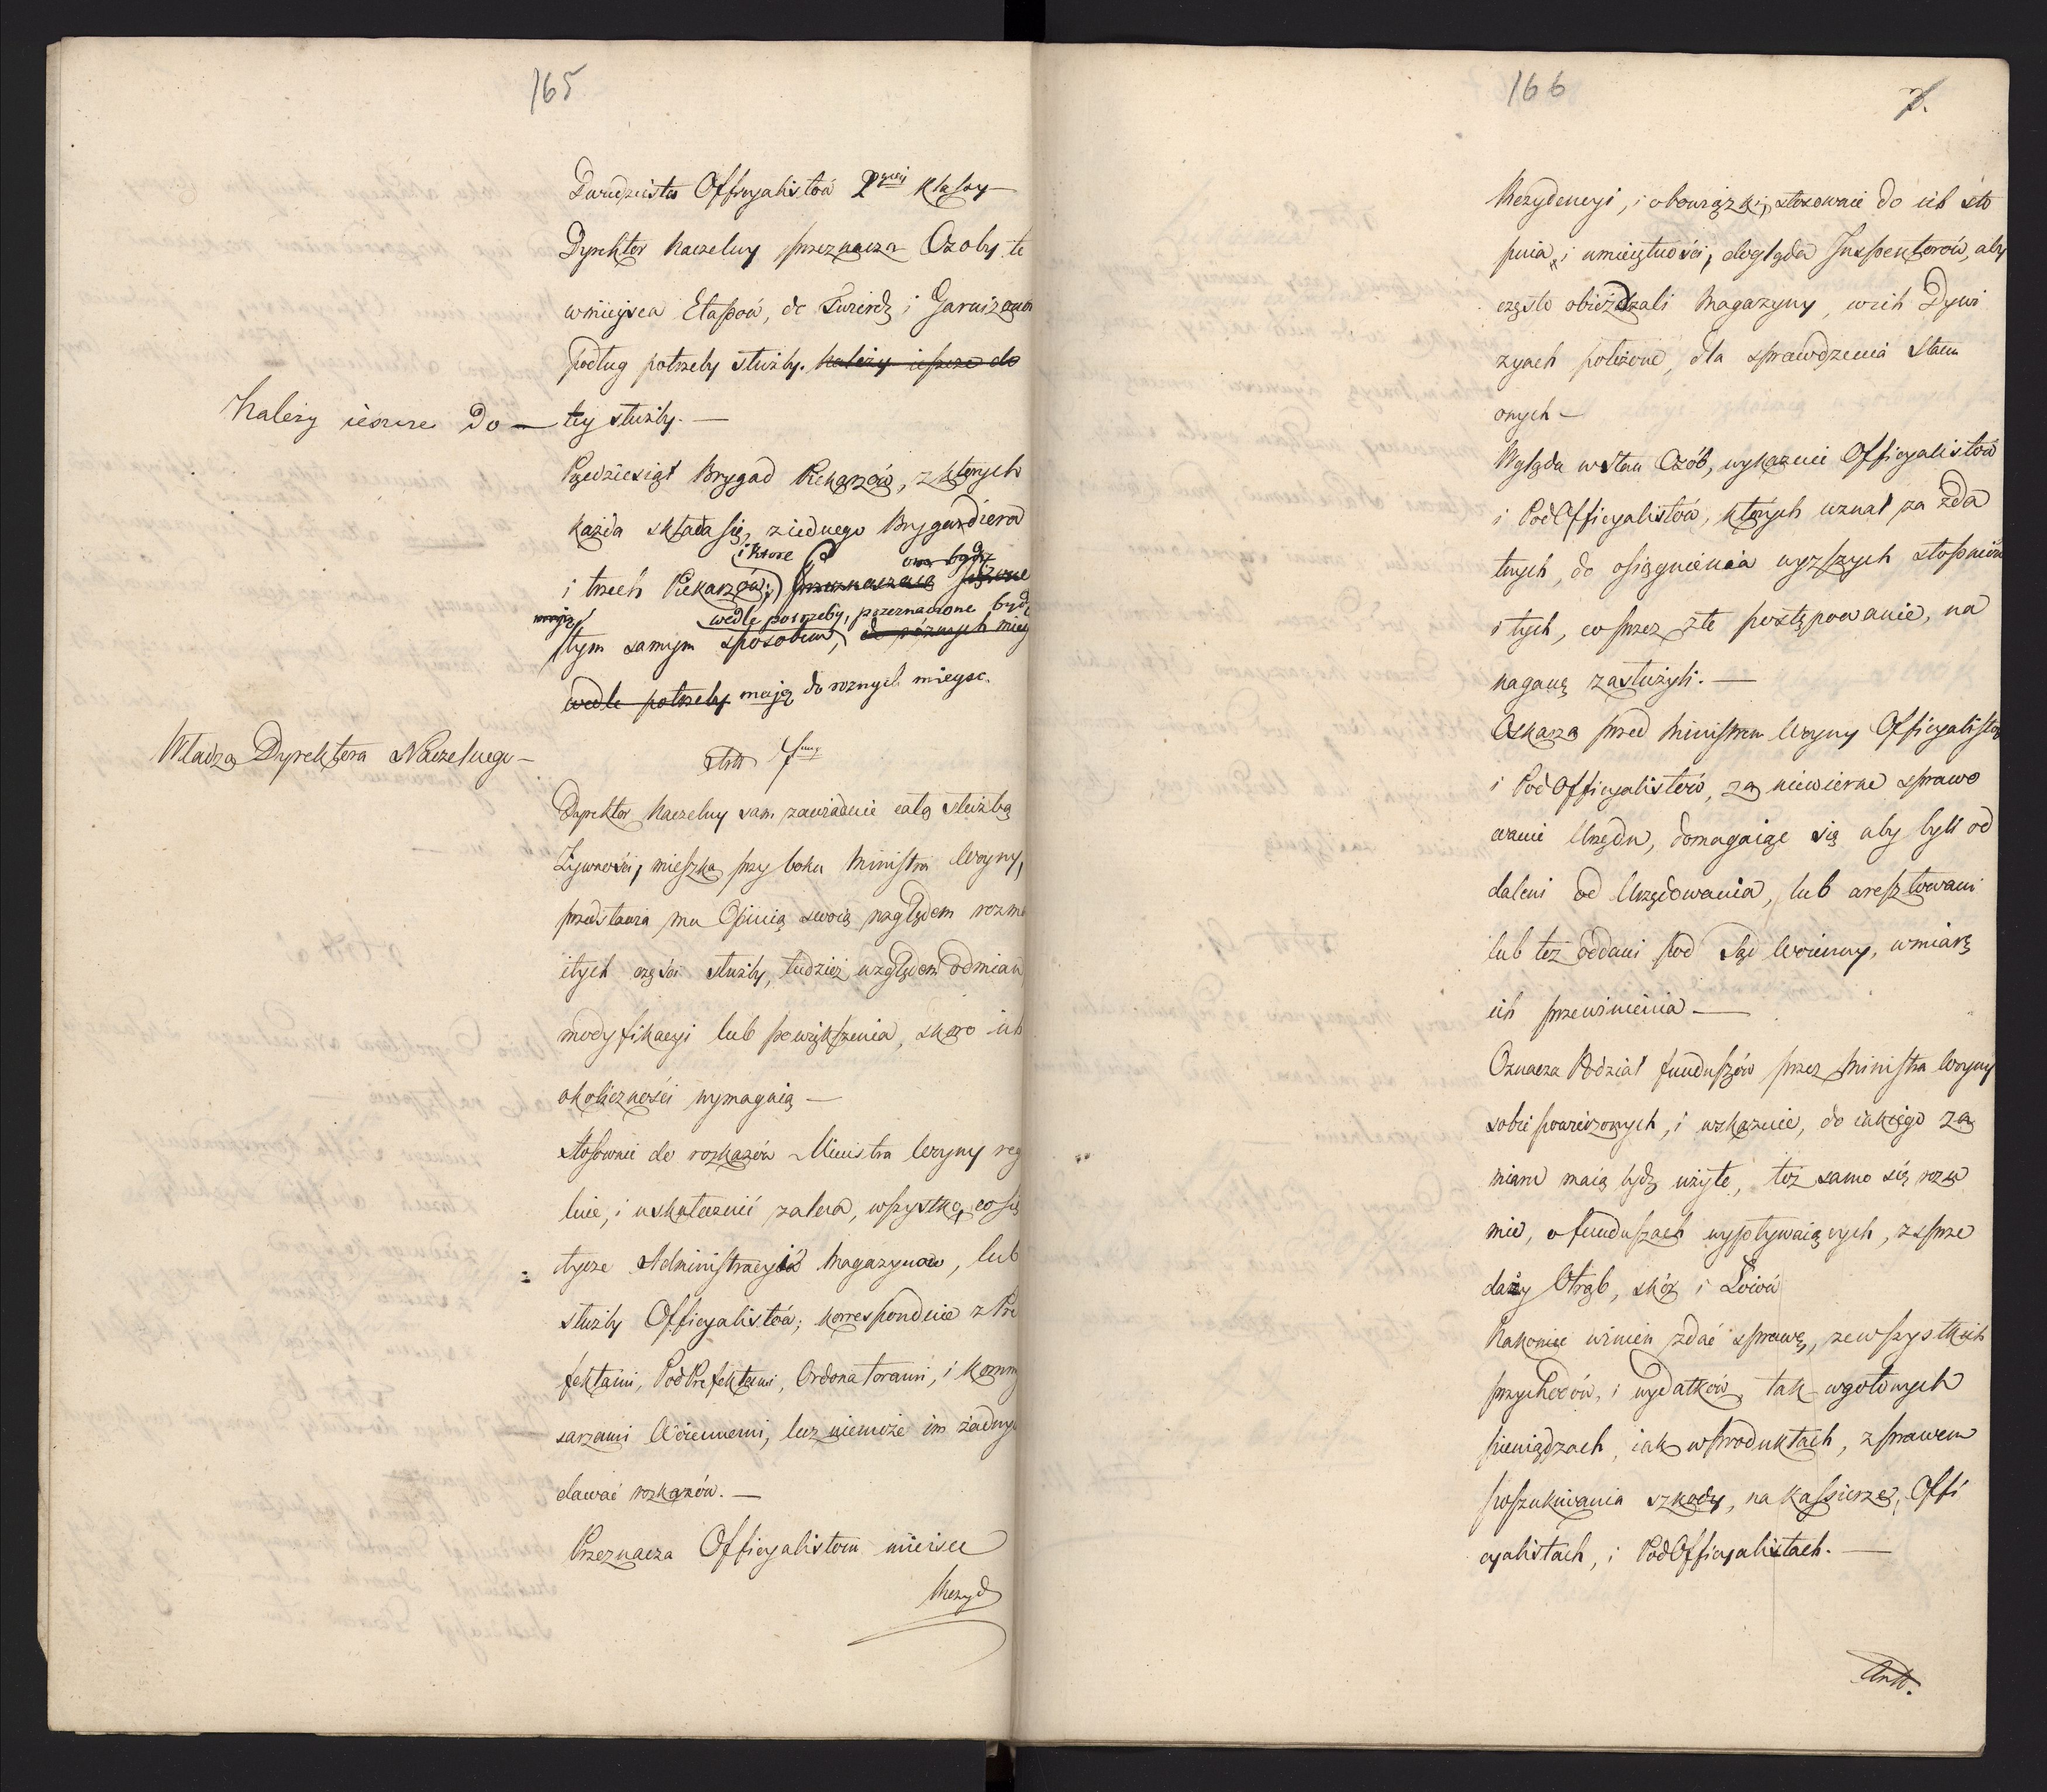 165
Dwudziestu Officyalistów 2giey Klassy
Dyrektor Naczelny przeznacza Osoby te
w mieysca Etapów, do Twierdz i Garnizonów
podług potrzeby służby. należy ieszcze do
Należy ieszcze do — tey służby. —
Pięćdziesiąt Brygad Piekarzów, z których
każda składa się, z iednego Brygardiera
i które
i trzech Piekarzów; przeznaczane
wedle potrzeby, przeznaczone bydź
maią
tym samym sposobem, do różnych miey
wedle potrzeby maią do roznych mieysc.
Władza Dyrektora Naczelnego —
Artt 7my
Dyrektor Naczelny sam zawiaduie całą służbą
Żywności, mieszka przy boku Ministra Woyny,
przedstawia mu Opinią swoią względem rozma
itych części służby, tudzież względem odmian,
modyfikacyi lub powiększenia, skoro ich
okoliczności wymagaią —
Stosownie do rozkazów Ministra Woyny reg
luie, i uskutecznić zaleca, wszystko, co się
tycze Administracyi Magazynow, lub
służby Officyalistów; korresponduie z Pre
fektami, PodPrefektami, Ordonatorami, i Kommis
sarzami Woiennemi, lecz niemoże im żadnych
dawać rozkazów. —
Przeznacza Officyalistom mieisce
Rezyd
166
7.
Rezydencyi, i obowiązki, stosownie do ich sto
pnia, i umieiętności, dogląda Inspektorów, aby
często obieżdżali Magazyny, w ich Dywi
zyach położone, dla sprawdzenia Stanu
onych —
Wgląda w Stan Osób, wykazuie Officyalistów
i PodOfficyalistów, których uznał za zda
tnych, do osiągnienia wyższych stopniów
i tych, co przez złe postępowanie, na
naganę zasłużyli. —
Oskarza przed Ministrem Woyny Officyalistów
i PodOfficyalistów, za niewierne sprawo
wanie Urzędu, domagaiąc się aby byli od
daleni od Urzędowania, lub aresztowani
lub też oddani pod Sąd Woienny, w miarę
ich przewinienia —
Oznacza Podział funduszów przez Ministra Woyny
sobie powierzonych, i wskazuie, do iakiego za
miaru maią bydź użyte, toż samo się rozu
mie, o funduszach wypływaiących, z sprze
daży Otrąb, skór i Łoiów
Nakoniec winien zdać sprawę, ze wszystkich
przychodów, i wydatków, tak w gotowych
pieniądzach, iak w produktach, z prawem
poszukiwania szkody, na Kassierze, Offi
cyalistach, i PodOfficyalistach. —
Artt.